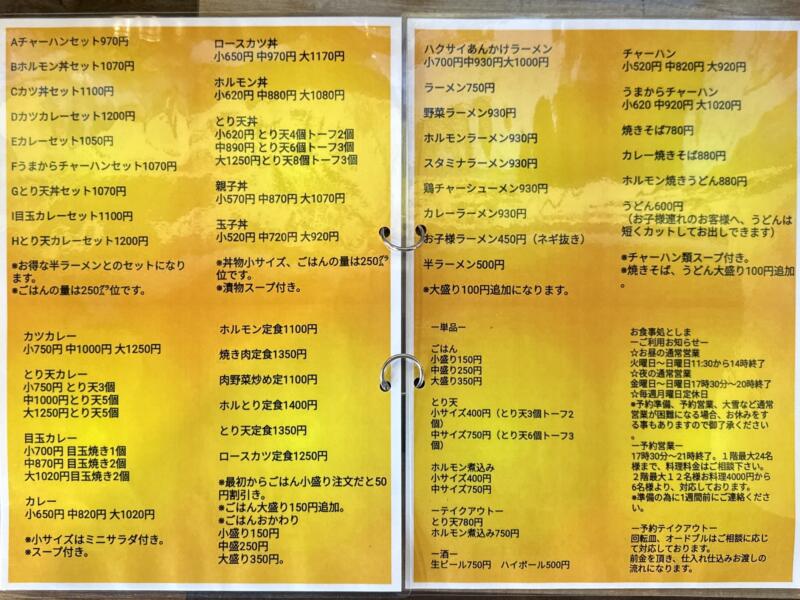 Aチャーハンセット970円
Bホルモン丼セット1070円
Cカツ丼セット1100円
Dカツカレーセット1200円
Eカレーセット1050円
Fうまからチャーハンセット1070円
Gとり天丼セット1070円
I目玉カレーセット1100円
Hとり天カレーセット1200円
※お得な半ラーメンとのセットになり
ます。
※ごはんの量は250㌘位です。
ロースカツ丼
小650円 中970円 大1170円
ホルモン丼
小620円 中880円 大1080円
とり天丼
小620円 とり天4個トーフ2個
中890円 とり天6個トーフ3個
大1250円とり天8個トーフ3個
親子丼
小570円 中870円 大1070円
玉子丼
小520円 中720円 大920円
※丼物小サイズ、ごはんの量は250㌘
位です。
※漬物スープ付き。
カツカレー
小750円 中1000円 大1250円
とり天カレー
小750円 とり天3個
中1000円とり天5個
大1250円とり天5個
目玉カレー
小700円 目玉焼き1個
中870円 目玉焼き2個
大1020円目玉焼き2個
カレー
小650円 中820円 大1020円
※小サイズはミニサラダ付き。
※スープ付き。
ホルモン定食1100円
焼き肉定食1350円
肉野菜炒め定1100円
ホルとり定食1400円
とり天定食1350円
ロースカツ定食1250円
※最初からごはん小盛り注文だと50
円割引き。
※ごはん大盛り150円追加。
※ごはんおかわり
小盛り150円
中盛250円
大盛り350円。
ハクサイあんかけラーメン
小700円中930円大1000円
ラーメン750円
野菜ラーメン930円
ホルモンラーメン930円
スタミナラーメン930円
鶏チャーシューメン930円
カレーラーメン930円
お子様ラーメン450円（ネギ抜き）
半ラーメン500円
※大盛り100円追加になります。
チャーハン
小520円 中820円 大920円
うまからチャーハン
小620 中920円 大1020円
焼きそば780円
カレー焼きそば880円
ホルモン焼きうどん880円
うどん600円
（お子様連れのお客様へ、うどんは
短くカットしてお出しできます）
※チャーハン類スープ付き。
※焼きそば、うどん大盛り100円追加
。
ー単品ー
ごはん
小盛り150円
中盛り250円
大盛り350円
とり天
小サイズ400円（とり天3個トーフ2
個）
中サイズ750円（とり天6個トーフ3
個）
ホルモン煮込み
小サイズ400円
中サイズ750円
ーテイクアウトー
とり天780円
ホルモン煮込み750円
ー酒ー
生ビール750円 ハイボール500円
お食事処としま
ーご利用お知らせー
☆お昼の通常営業
火曜日〜日曜日11:30から14時終了
☆夜の通常営業
金曜日〜日曜日17時30分〜20時終了
☆毎週月曜日定休日
※予約準備、予約営業、大雪など通常
営業が困難になる場合、お休みをす
る事もありますので御了承ください
。
ー予約営業ー
17時30分〜21時終了。１階最大24名
様まで、料理料金はご相談下さい。
２階最大１２名様お料理4000円から
6名様より、対応しております。
※準備の為に1週間前にご連絡くださ
い。
ー予約テイクアウトー
回転皿、オードブルはご相談に応じ
て対応しております。
前金を頂き、仕入れ仕込みお渡しの
流れになります。